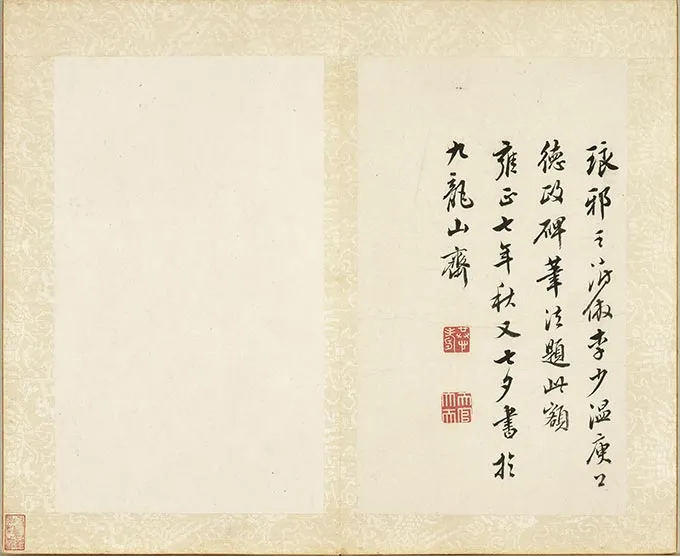 琅邪王澍倣李少温庾公
德政碑筆法題此額
雍正七年秋又七夕書於
九龍山齋